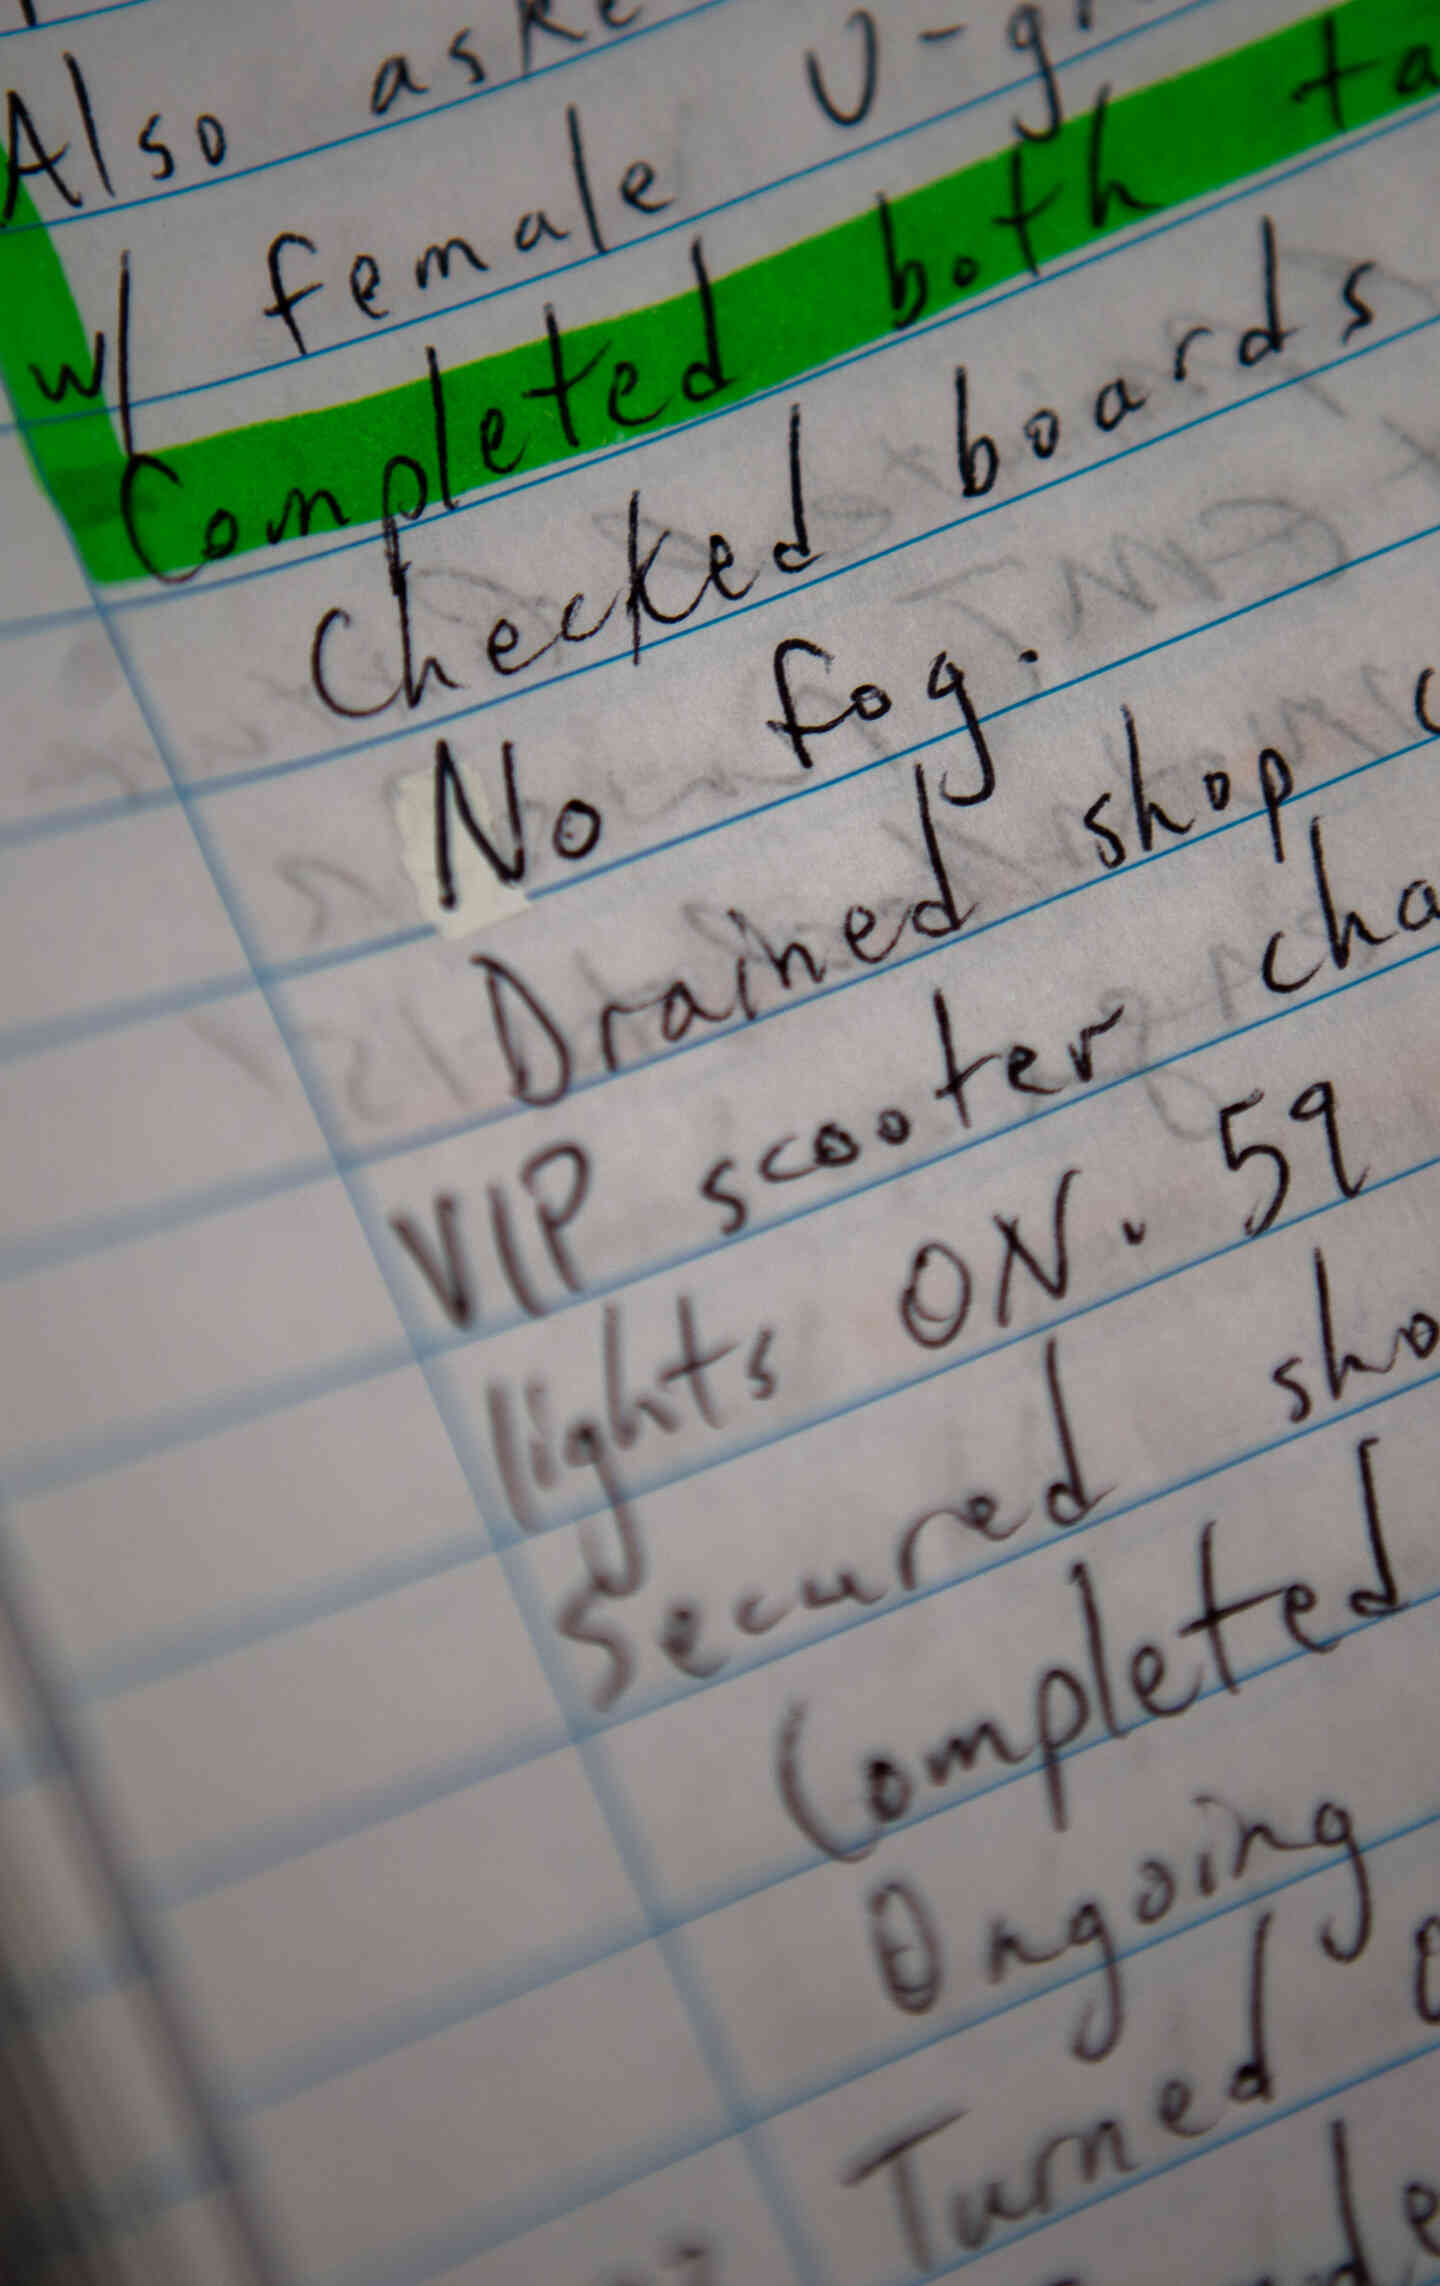 Also aske
w/ female U-gr
Completed both ta
Checked boards
No fog.
Drained shop c
VIP scooter cha
lights ON. 59
Secured sho
Completed
Ongoing
Turned